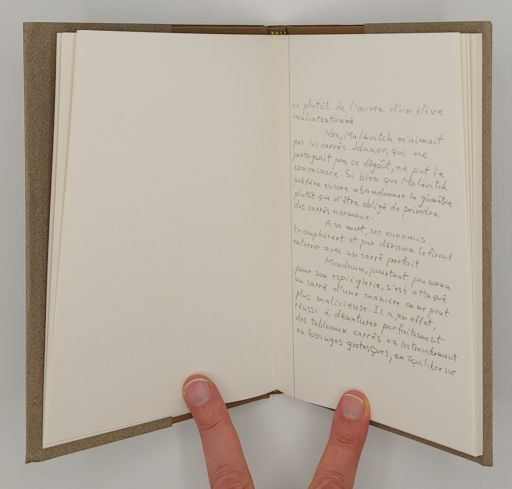 ou plutôt de l'œuvre d'un élève
malintentionné.
Non, Malévitch n'aimait
pas les carrés. Jdanov, qui ne
partageait pas ce dégoût, ne put le
convaincre. Si bien que Malévitch
préféra encore abandonner la géométrie
plutôt que d'être obligé de peindre
des carrés normaux.
A sa mort, ses ennemis
triomphèrent et par dérision le firent
enterrer avec un carré parfait.
Mondrian, pourtant peu connu
pour son espièglerie, s'est attaqué
au carré d'une manière on ne peut
plus malicieuse. Il a, en effet,
réussi à dénaturer parfaitement
des tableaux carrés en les transformant
en losanges grotesques, en équilibre sur